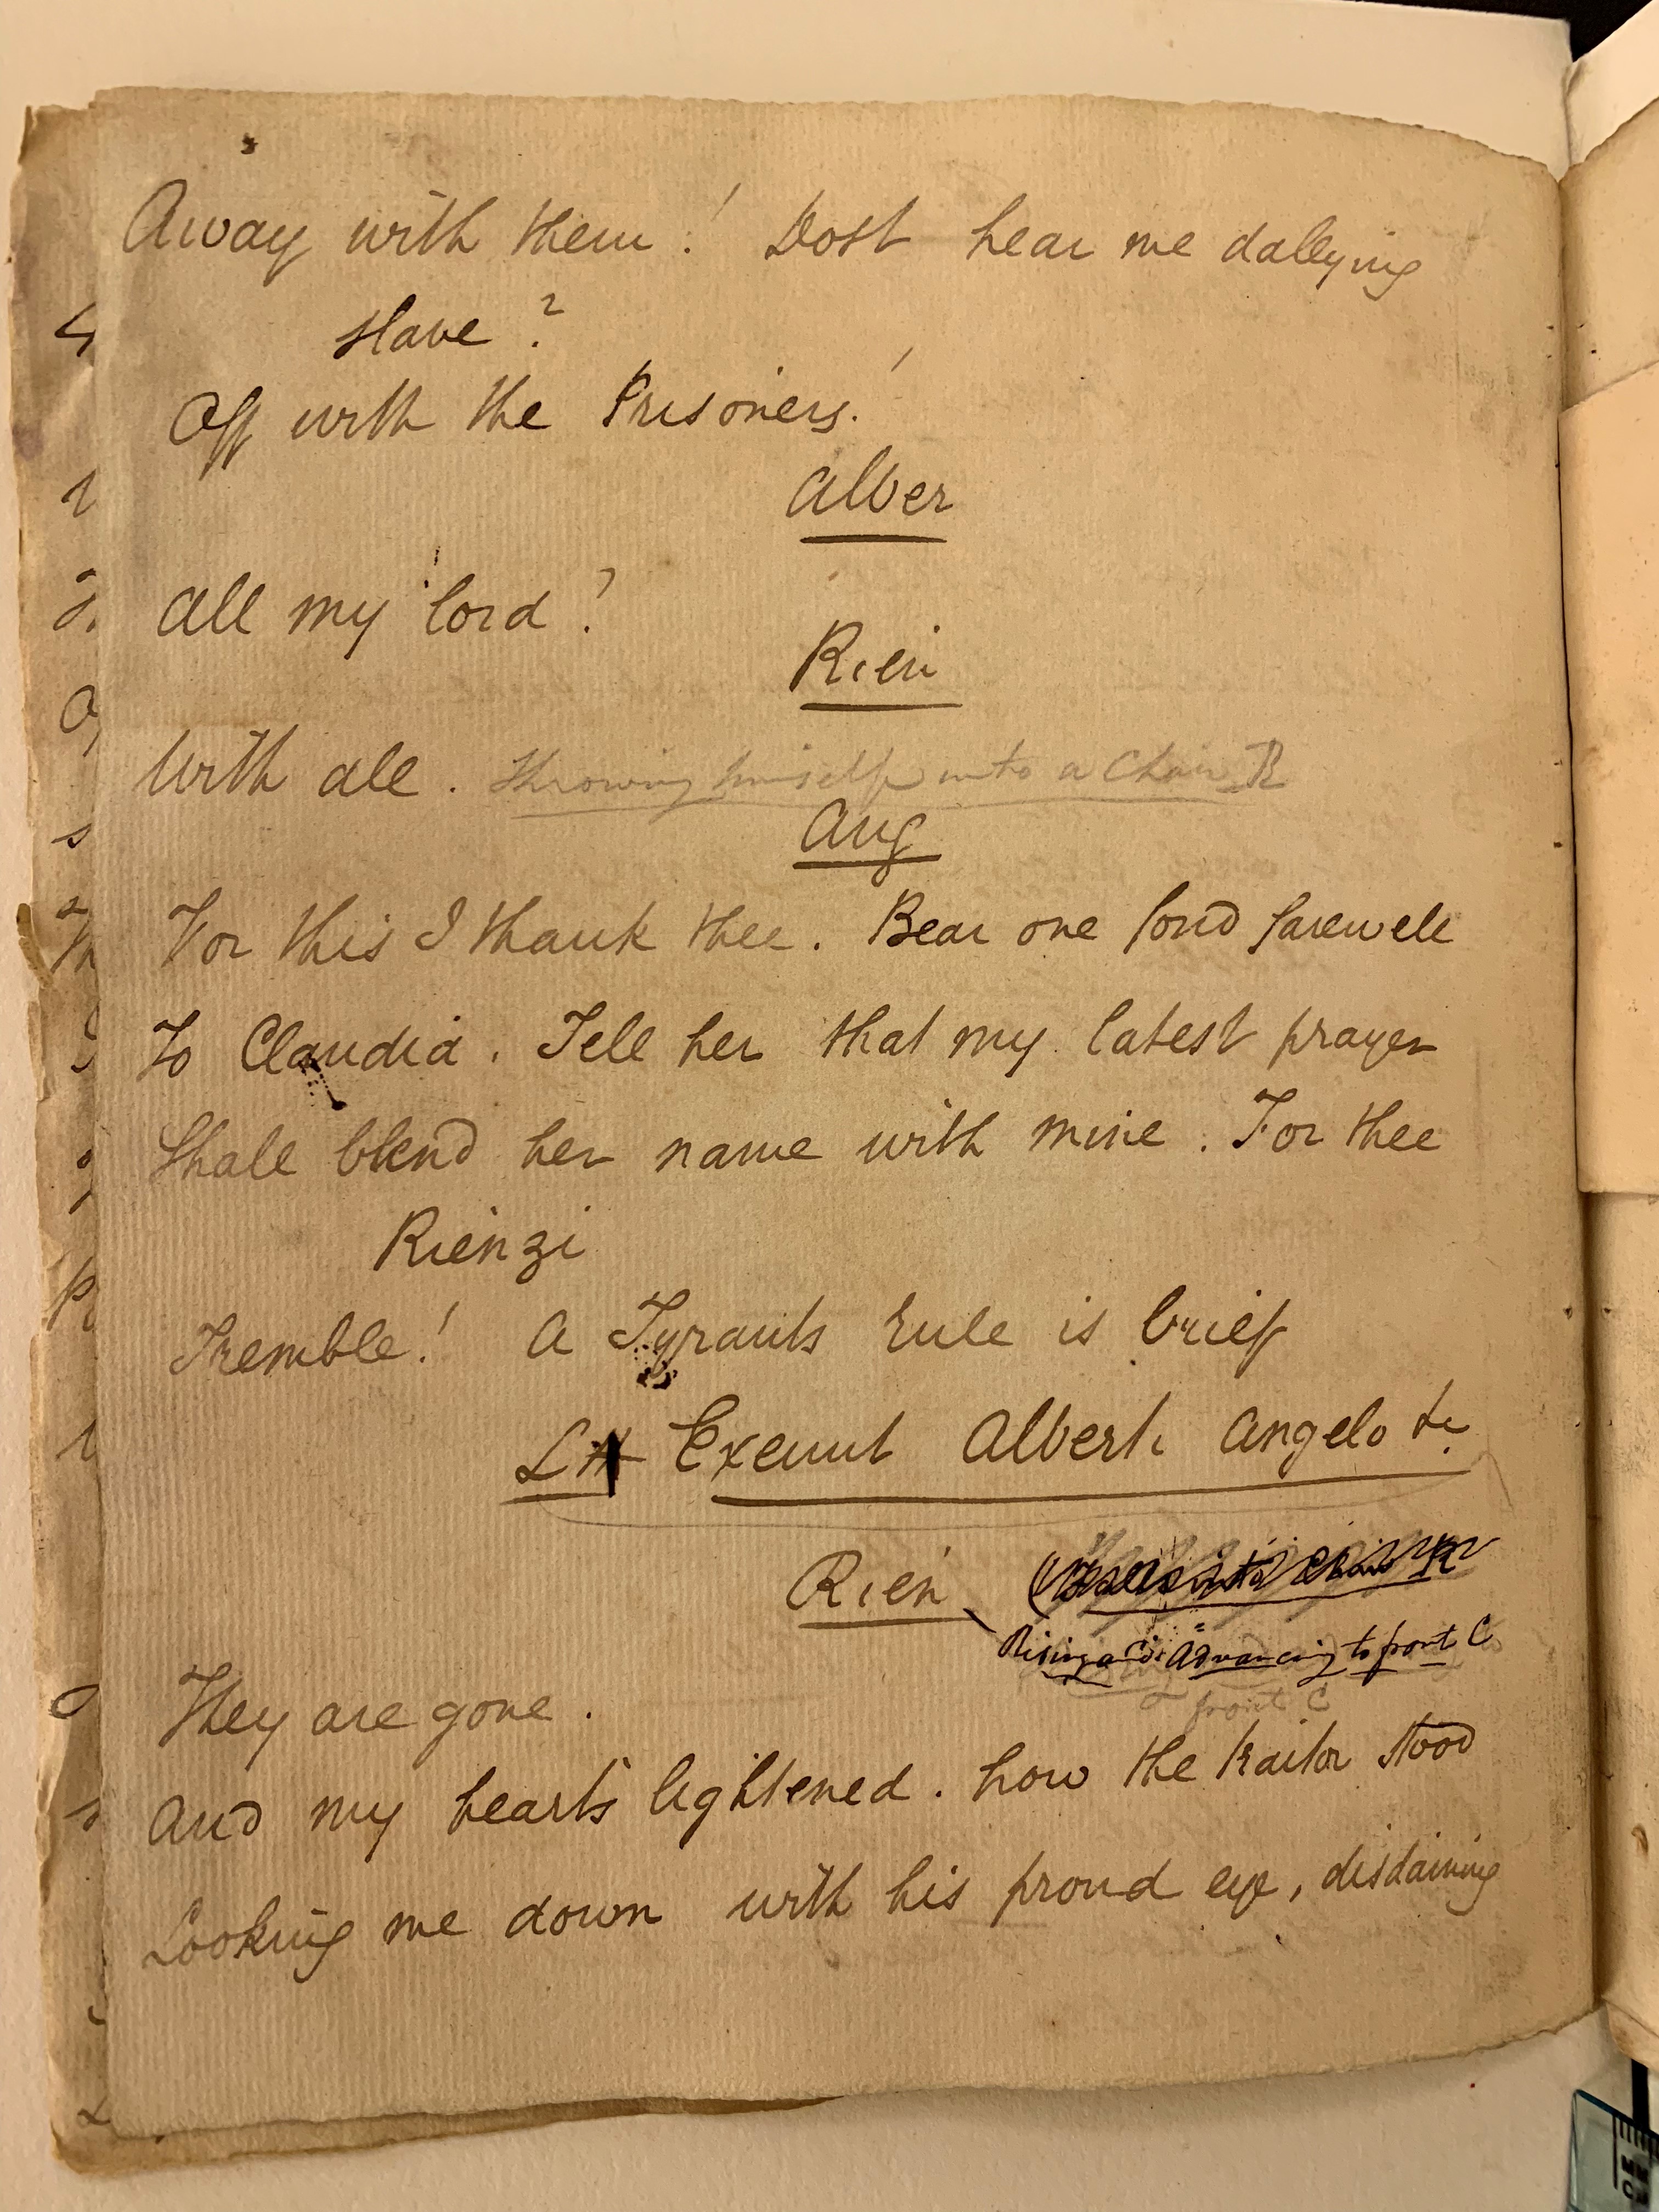 Away with them! Dost hear me dallying
slave?
Off with the Prisoners!
Alber
All my lord?
Rien
With all. Throwing himself into a Chair R
Ang
For this I thank thee. Bear one fond farewell
To Claudia. Tell her that my latest prayer
Shall blend her name with mine. For thee
Rienzi
Tremble! A Tyrants rule is brief
LH Exeunt Alberti Angelo &c
Rien
Rising and Advancing to front C
front C
They are gone.
And my hearts lightened. how the traitor stood
Looking me down with his proud eye, disdaining